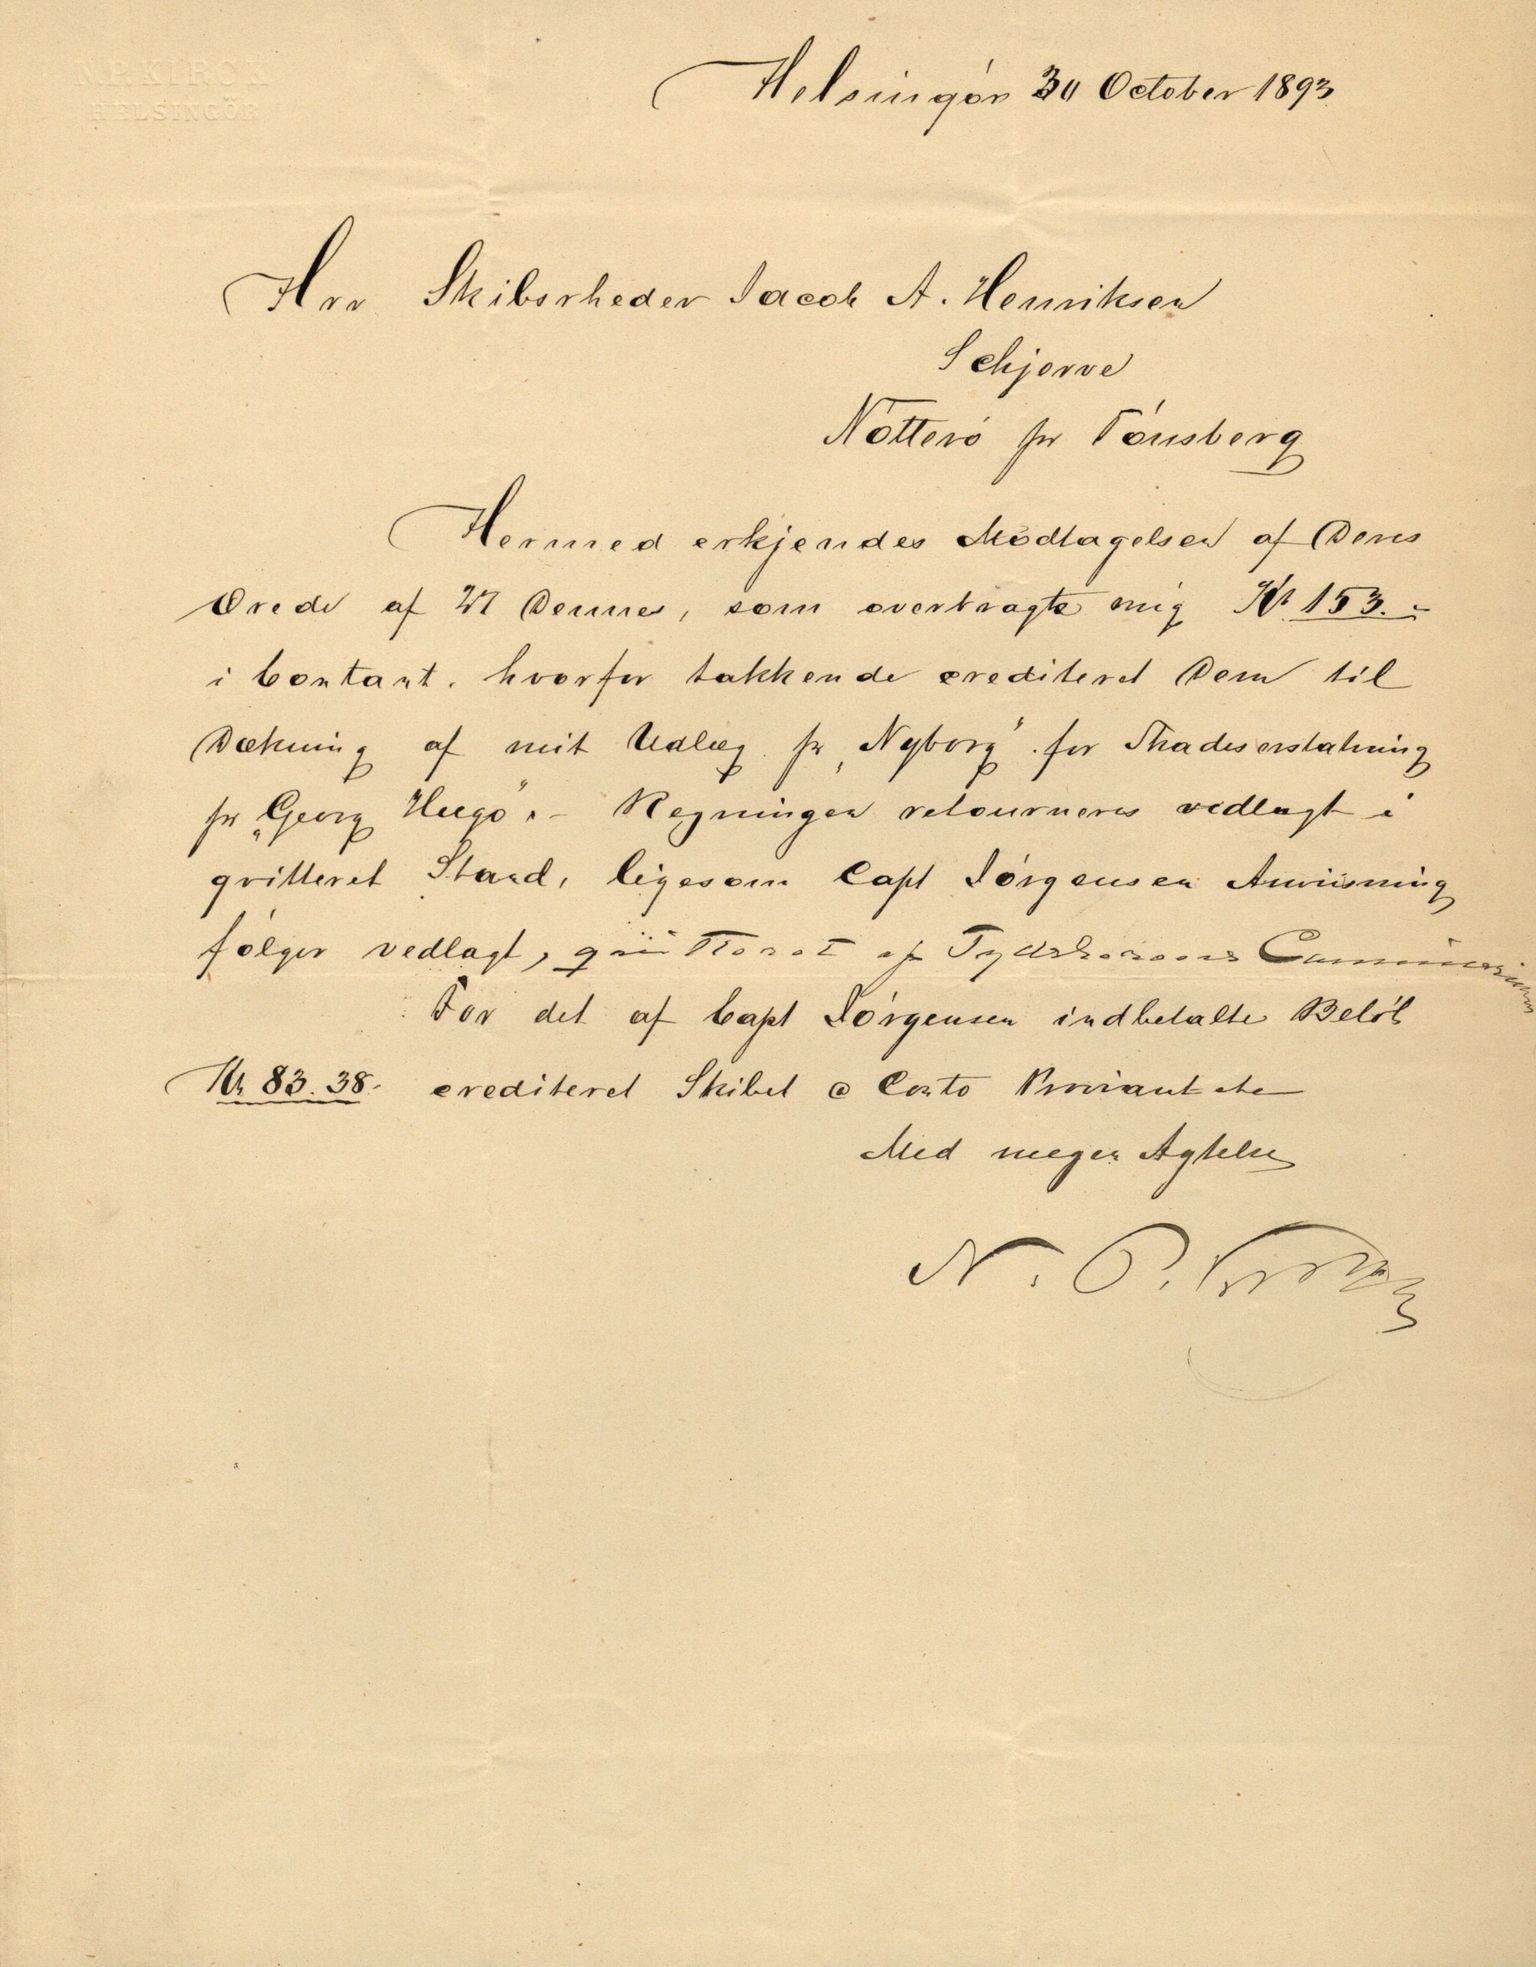 HELSINGÖR
Helsingör 30 October 1893
Hrr Skibsrheder Jacob A. Henriksen
Schjerve
Nötterö pr Tönsberg
Hermed erkjendes Modtagelsen af Deres
Ærede af 27 Dennes, som overbragte mig Kr 153.-
i Contant. hvorfor takkende crediteret Dem til
Dækning af mit Udlæg pr "Nyborg" for Skadeserstatning
pr "Georg Hugo". - Regningen retourneres vedlagt i
qvitteret Stand, ligesom Capt Jörgensen Anviisning
fölger vedlagt, qvitteret af
For det af Capt Jörgensen indbetalte Belöb
Kr 83.38. crediteret Skibet a Conto Proviant etc
Med megen Agtelse
N. P.